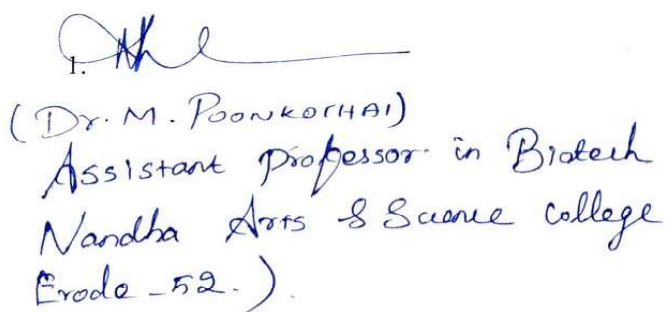 1.
(Dr. M. POONKOTHAI)
Assistant Professor in Biotech
Nandha Arts & Science College
Erode - 52.)